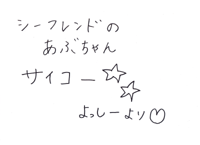 シーフレンドの
あぶちゃん
サイコー☆☆
よっしーより♡